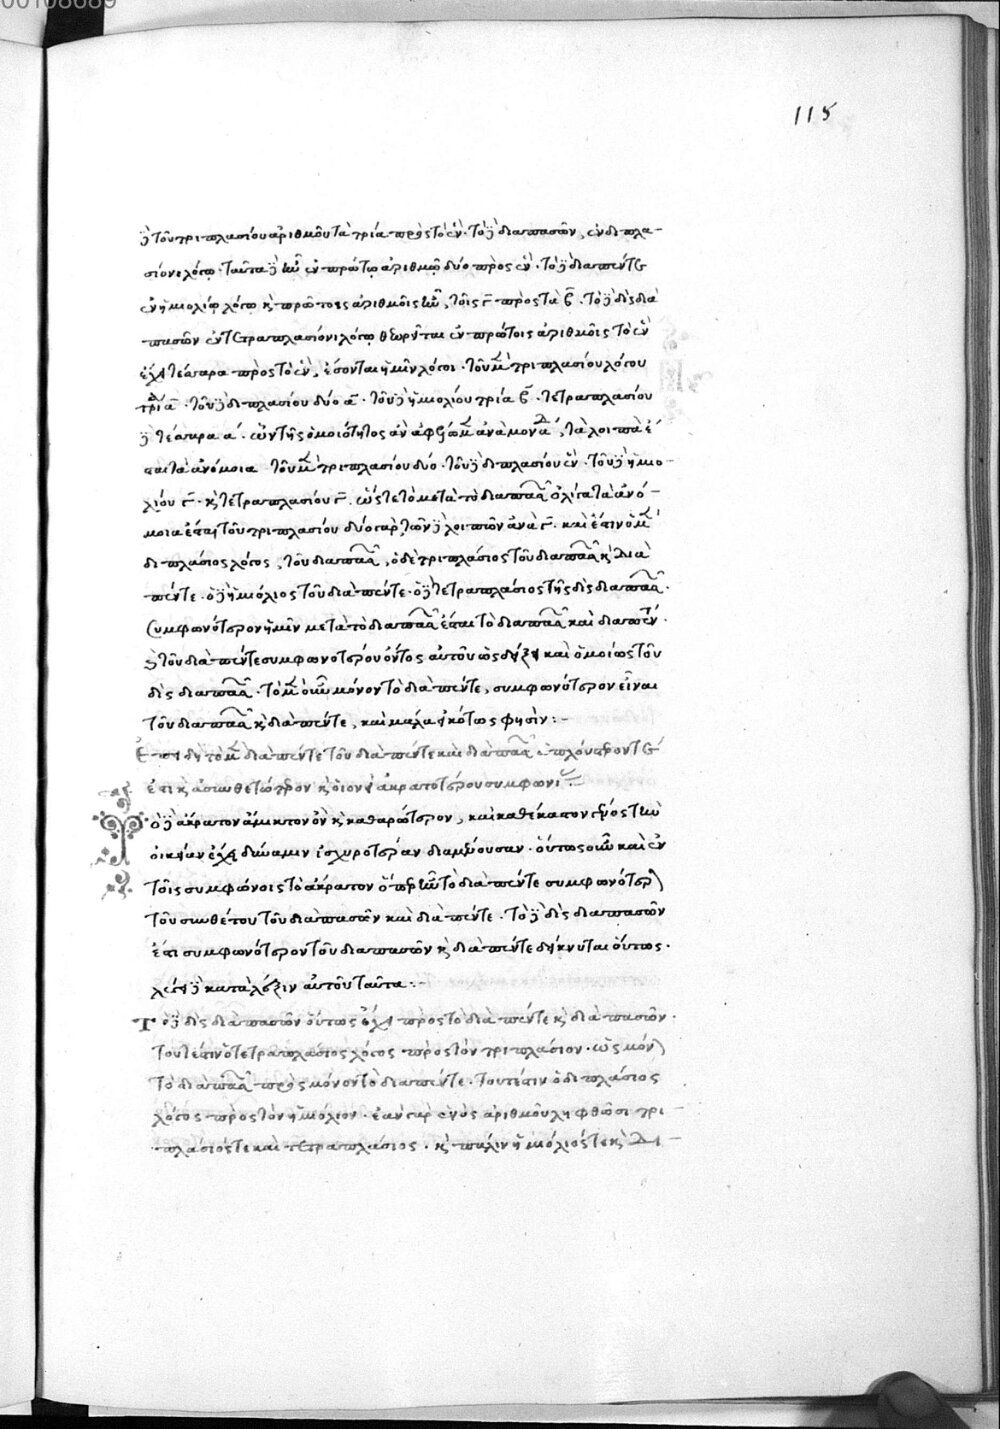 115
δὲ τοῦ τριπλασίου ἀριθμοῦ τὰ τρία πρὸς τὸ ἕν· τὸ δὲ διαπασῶν, ἐν διπλα-
σίονι λόγῳ· ταῦτα δὲ ἦν ἐν πρώτῳ ἀριθμῷ δύο πρὸς ἕν· τὸ δὲ διαπέντε
ἐν ἡμιολίῳ λόγῳ κ πρώτοις ἀριθμοῖς ἦν, τοῖς γ πρὸς τὰ β· τὸ δὲ δὶς διὰ
πασῶν ἐν τετραπλασίονι λόγῳ θεωρεῖται ἐν πρώτοις ἀριθμοῖς τὸ ἓν
ἔχει τέσσαρα πρὸς τὸ ἕν, ἔσονται ἡμῖν λόγοι· τοῦ μὲν τριπλασίου λόγου
τρία α· τοῦ δὲ διπλασίου δύο α· τοῦ δὲ ἡμιολίου τρία β· τετραπλασίου
δὲ τέσσαρα α· ὧν τῆς ὁμοιότητος ἂν ἀφέλωμεν ἀνὰ μονάδα, τὰ λοιπὰ ἔ-
σται τὰ ἀνόμοια τοῦ μὲν τριπλασίου δύο· τοῦ δὲ διπλασίου ἕν· τοῦ δὲ ἡμιο-
λίου γ· κ τετραπλασίου γ· ὥστε τὸ μετὰ τὸ διαπασῶν ὀλίγα τὰ ἀνό-
μοια ἔσται τοῦ τριπλασίου δύο γὰρ, τῶν δὲ λοιπῶν ἀνὰ γ· καὶ ἔστιν ὁ μὲν
διπλάσιος λόγος, τοῦ διαπασῶν, ὁ δὲ τριπλάσιος τοῦ διαπασῶν κ διὰ
πέντε· ὁ δὲ ἡμιόλιος τοῦ διὰ πέντε· ὁ δὲ τετραπλάσιος τῆς δὶς διαπασῶν·
συμφωνότερον ἡμῖν μετὰ τὸ διαπασῶν ἔσται τὸ διαπασῶν καὶ διαπέντε·
τοῦ διὰ πέντε συμφωνοτέρου ὄντος αὐτοῦ ὡς δείξει καὶ ὁμοίως τοῦ
δὶς διαπασῶν· τὸ μὲν οὖν μόνον τὸ διὰ πέντε, συμφωνότερον εἶναι
τοῦ διαπασῶν κ διὰ πέντε, καὶ μάλα εἰκότως φησὶν:-
Ἐπειδὴ τὸ μὲν διὰ πέντε τοῦ διὰ πέντε καὶ διὰ πασῶν ἁπλούστερόν τε
ἐστι κ ἀσυνθετώτερον κ οἱονεὶ ἀκρατοτέρου συμφωνί
ὁ δὲ ἄκρατον ἄμικτον ὂν κ καθαρώτερον, καὶ καθ' ἕκαστον πρὸς τὴν
οἰκείαν ἔχει δύναμιν ἰσχυροτέραν διαμένουσαν· οὕτως οὖν καὶ ἐν
τοῖς συμφώνοις τὸ ἄκρατον ὅπερ ἦν τὸ διὰ πέντε συμφωνότερον
τοῦ συνθέτου τοῦ διὰ πασῶν καὶ διὰ πέντε· τὸ δὲ δὶς διαπασῶν
ἔτι συμφωνότερον τοῦ διαπασῶν κ διὰ πέντε δείκνυται οὕτως·
λέγει δὲ κατὰ λέξιν αὐτοῦ ταῦτα:-
Τὸ δὲ δὶς διὰ πασῶν οὕτως ἔχει πρὸς τὸ διὰ πέντε κ διὰ πασῶν·
τουτέστιν ὁ τετραπλάσιος λόγος πρὸς τὸν τριπλάσιον· ὡς μόνον
τὸ διαπασῶν πρὸς μόνον τὸ διαπέντε· τουτέστιν ὁ διπλάσιος
λόγος πρὸς τὸν ἡμιόλιον· ἐὰν γὰρ ἑνὸς ἀριθμοῦ ληφθῶσι τρι-
πλάσιός τε καὶ τετραπλάσιος· κ πάλιν ἡμιόλιός τε κ δι-